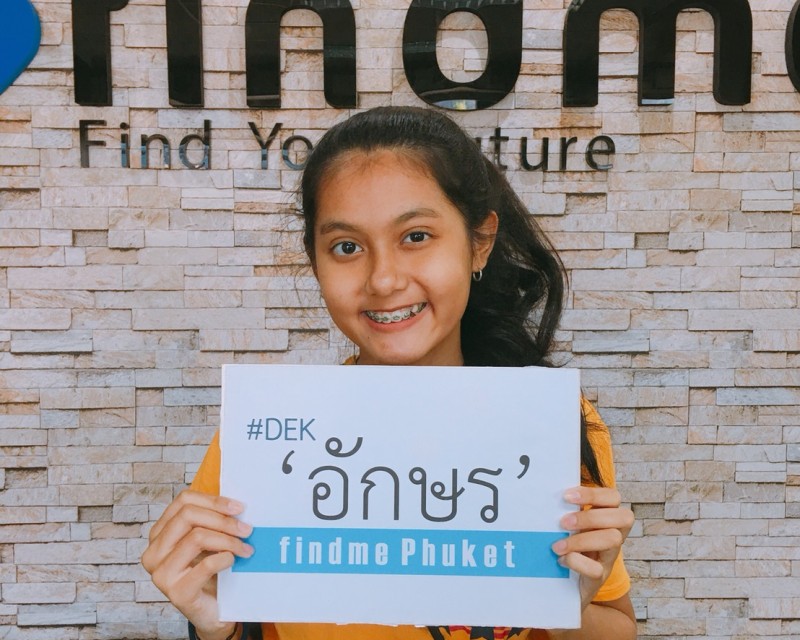 findme
Find Yo ture
#DEK
‘อักษร’
findme Phuket